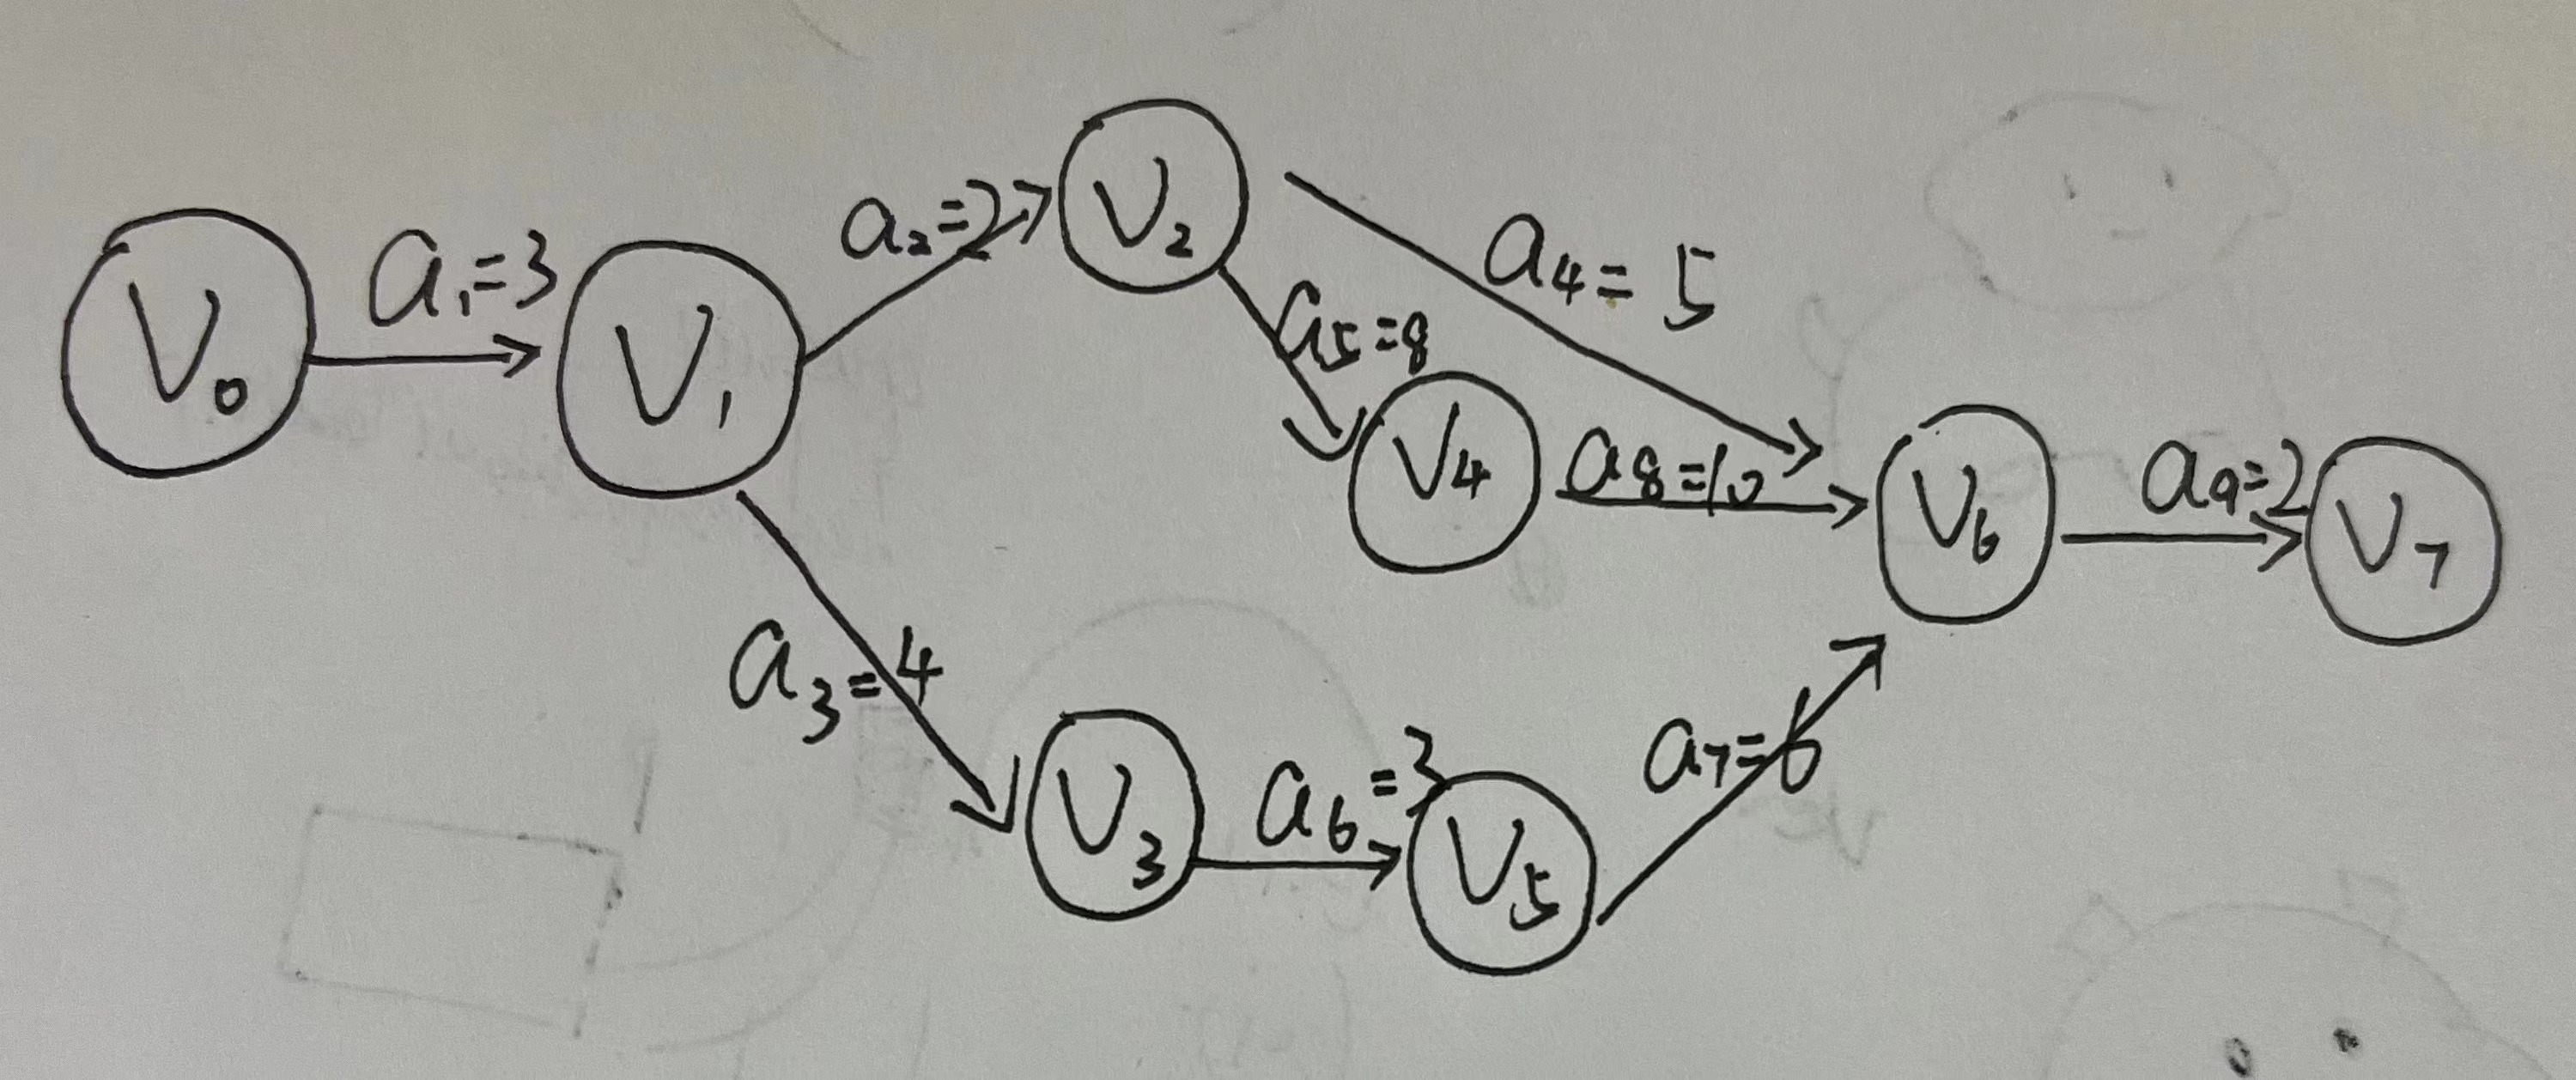 V₀
a₁=3
V₁
a₂=2
V₂
a₄=5
a₅=8
V₄
a₈=10
V₆
a₉=2
V₇
a₃=4
V₃
a₆=3
V₅
a₇=6